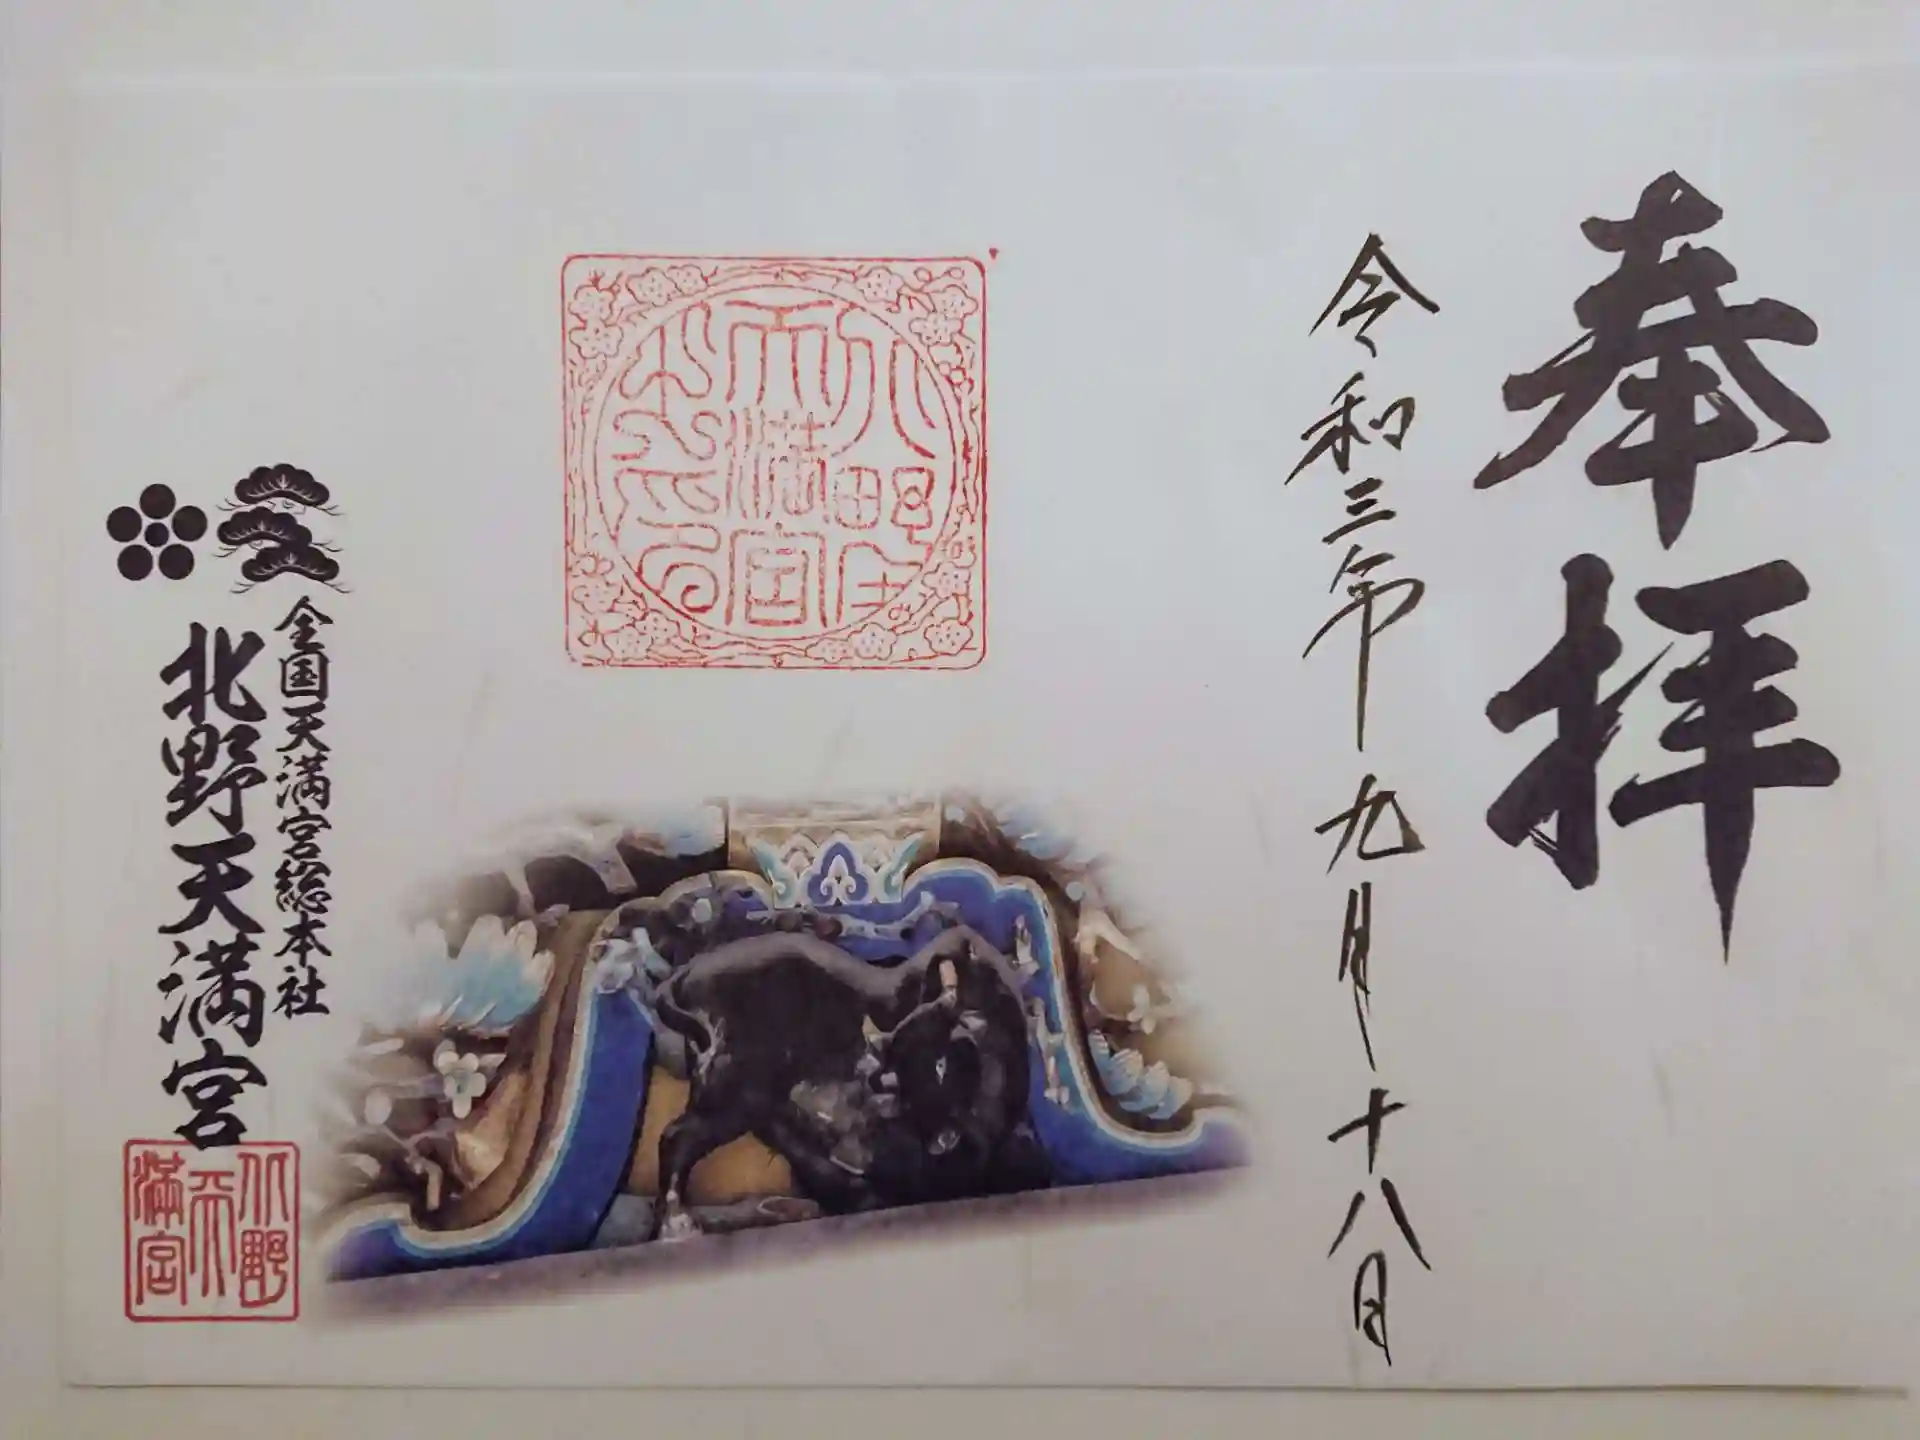 奉拝
令和三年九月十八日
北野天満宮
全国天満宮総本社
北野天満宮
北野天満宮